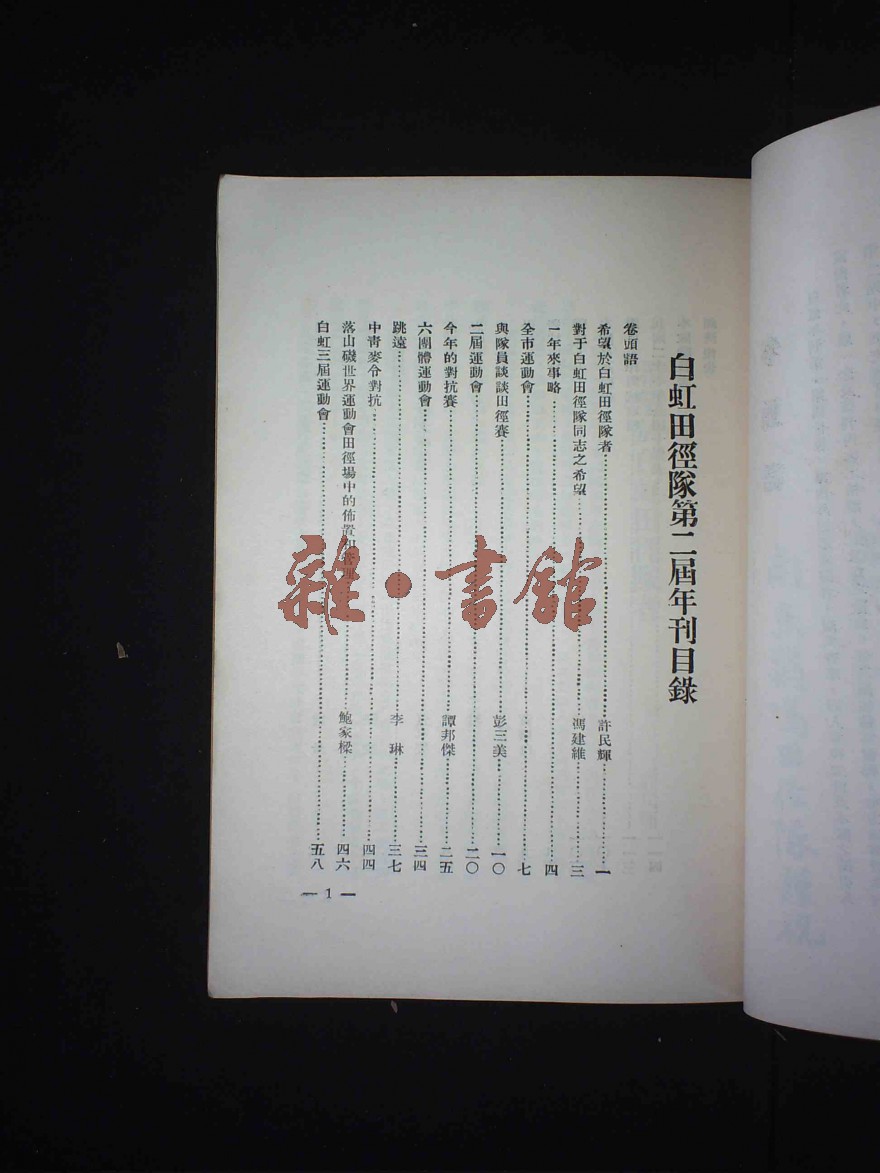 白虹田徑隊第二屆年刊目錄
卷頭語
希望於白虹田徑隊者……許民輝……一
對于白虹田徑隊同志之希望……馮建維……三
一年來事略……四
全市運動會……七
與隊員談談田徑賽……彭三美……一〇
二屆運動會……二〇
今年的對抗賽……譚邦傑……二五
六團體運動會……三四
跳遠……李　琳……三七
中青麥令對抗……四四
落山磯世界運動會田徑場中的佈置……鮑家樑……四六
白虹三屆運動會……五八
— 1 —
雜·書館